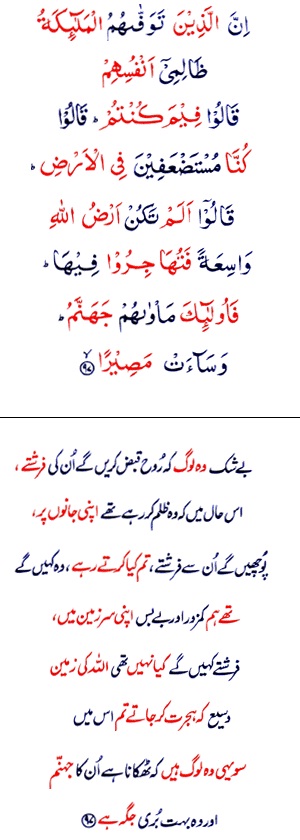 اِنَّ الَّذِيْنَ تَوَفّٰىهُمُ الْمَلٰٓئِكَةُ
ظَالِمِيْٓ اَنْفُسِهِمْ
قَالُوْا فِيْمَ كُنْتُمْ ؕ قَالُوْا
كُنَّا مُسْتَضْعَفِيْنَ فِي الْاَرْضِ ؕ
قَالُوْٓا اَلَمْ تَكُنْ اَرْضُ اللّٰهِ
وَاسِعَةً فَتُهَاجِرُوْا فِيْهَا ؕ
فَاُولٰٓئِكَ مَاْوٰىهُمْ جَهَنَّمُ ؕ
وَسَآءَتْ مَصِيْرًا ۙ ﴿۹۷﴾
بے شک وہ لوگ کہ رُوح قبض کریں گے اُن کی فرشتے ،
اس حال میں کہ وہ ظلم کر رہے تھے اپنی جانوں پر،
پُوچھیں گے اُن سے فرشتے، تم کیا کرتے رہے، وہ کہیں گے
تھے ہم کمزور اور بے بس اپنی سرزمین میں،
فرشتے کہیں گے کیا نہیں تھی اللہ کی زمین
وسیع کہ ہجرت کر جاتے تم اس میں
سو یہی وہ لوگ ہیں کہ ٹھکانا ہے اُن کا جہنّم
اور وہ بہت بُری جگہ ہے ﴿۹۷﴾